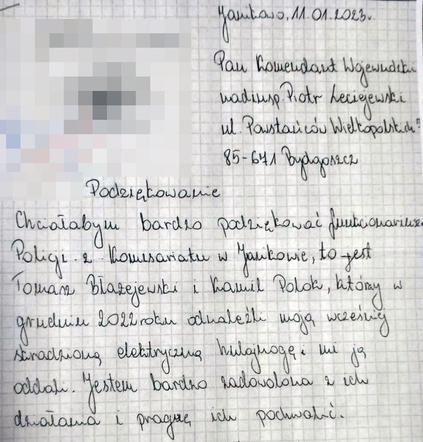 Janikowo, 11.01.2023r.
Pan Komendant Wojewódzki
nadinsp. Piotr Leciejewski
ul. Powstańców Wielkopolskich 7
85-641 Bydgoszcz
Podziękowanie
Chciałabym bardzo podziękować funkcionariuszom
Policji z Komisariatu w Janikowie, to jest
Tomasz Błażejewski i Kamil Polak, którzy w
grudniu 2022 roku odnaleźli moją wcześniej
skradzioną elektryczną hulajnogę i mi ją
oddali. Jestem bardzo zadowolona z ich
działania i pragnę ich pochwalić.